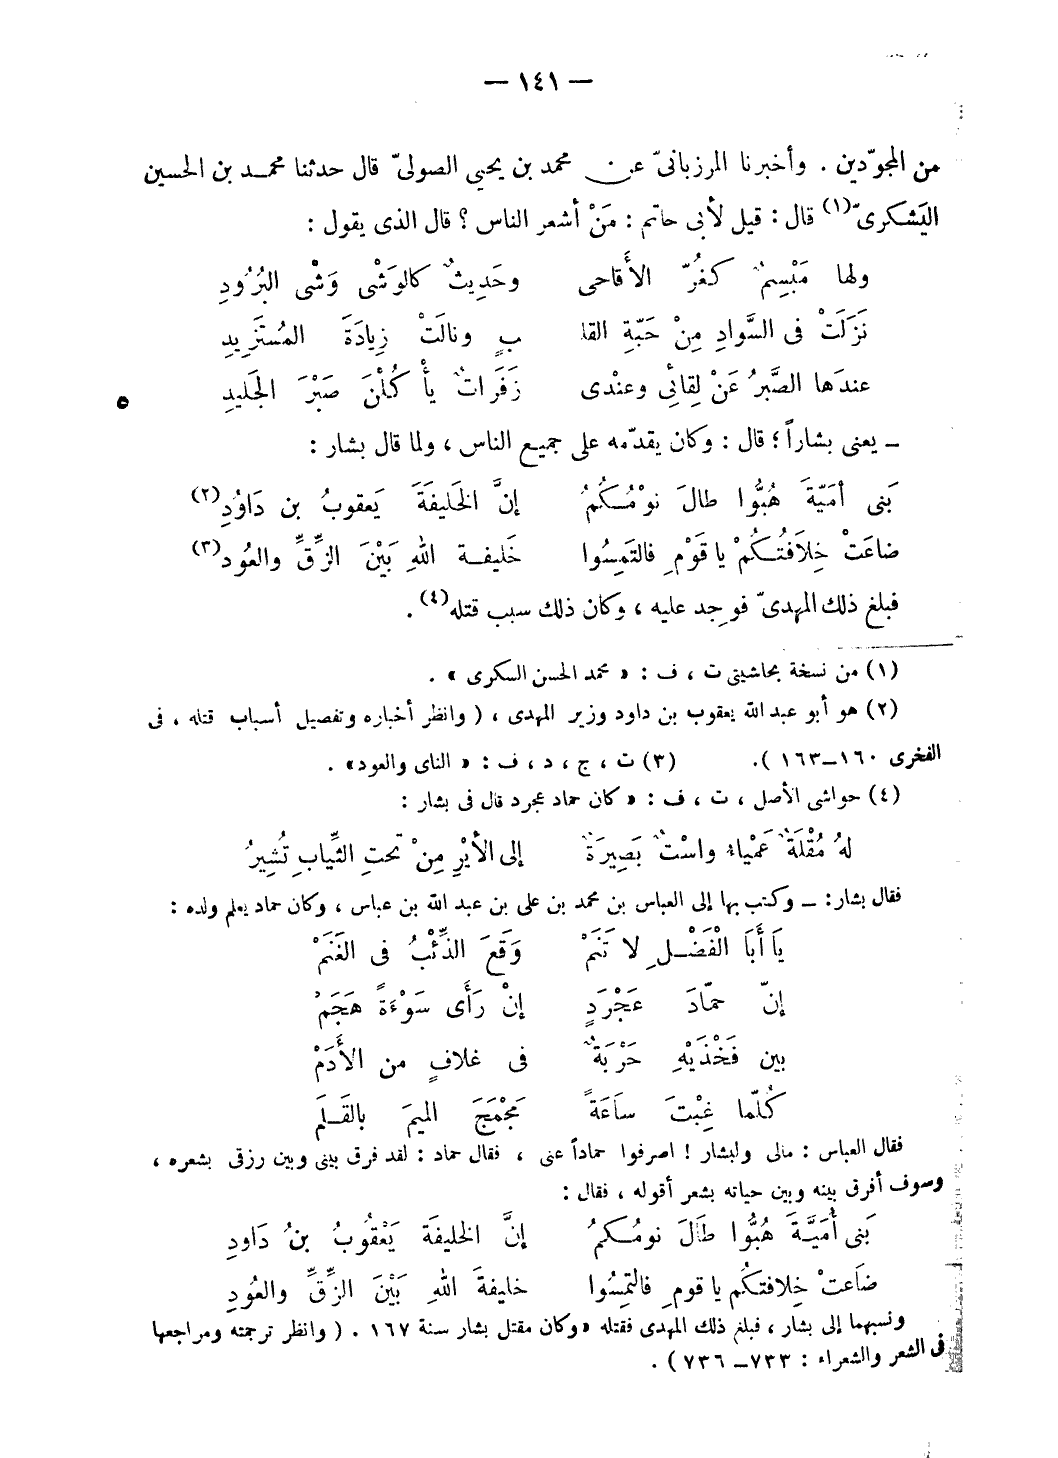 — ١٤١ —
من المجوّدين . وأخبرنا المرزبانىّ عن محمد بن يحيي الصولىّ قال حدثنا محمـد بن الحسين
اليَشكرىّ(١) قال : قيل لأبى حاتم : مَنْ أشعر الناس ؟ قال الذى يقول :
ولها مَبْسِمٌ كغُرّ الأَقاحى وحَدِيثٌ كالوَشْى وَشْى البُرُودِ
نَزَلَتْ فى السَّوادِ مِنْ حَبّةِ القلـ ـبِ ونالَتْ زِيادَةَ المُسْتَزِيدِ
عندَها الصَّبرُ عَنْ لِقائِى وعندى زَفَرَاتٌ يأْكُلْنَ صَبْرَ الجَليدِ
ـ يعنى بشاراً ؛ قال : وكان يقدّمه على جميع الناس ، ولما قال بشار :
٥
بَنى أمَيّةَ هُبُّوا طالَ نومُكُمُ إنَّ الخَليفَةَ يَعقوبُ بن دَاوُدِ(٢)
ضاعَتْ خِلَافَتُكُمْ يا قَوْمِ فالتَمِسُوا خَليفـة اللهِ بَيْنَ الزِّقِّ والعُودِ(٣)
فبلغ ذلك المهدىّ فوجِد عليه ، وكان ذلك سبب قتله(٤) .
(١) من نسخة بحاشيتى ت ، ف : « محمد الحسن السكرى » .
(٢) هو أبو عبد الله يعقوب بن داود وزير المهدى ، ( وانظر أخباره وتفصيل أسباب قتله ، فى
الفخرى ١٦٠ـ١٦٣ ). (٣) ت ، ج ، د ، ف : « الناى والعود» .
(٤) حواشى الأصل ، ت ، ف : « كان حماد عجرد قال فى بشار :
لهُ مُقْلَةٌ عَمْياءُ واسْتٌ بَصِيرَةٌ إلى الأيْرِ مِنْ تحتِ الثِّيابِ تُشيرُ
فقال بشار: ـ وكتب بها إلى العباس بن محمد بن على بن عبد الله بن عباس ، وكان حماد يعلم ولده :
يَا أَبَا الْفَضْـلِ لا تَنَمْ وَقَعَ الذِّئْبُ فى الغَنَمْ
إنّ حمّادَ عَجْرَدٍ إنْ رَأَى سَوْءَةً هَجَمْ
بين فَخْذَيْهِ حَرْبَةٌ فى غلافٍ من الأَدَمْ
كُلّما غِبْتَ سَاعَةً مَجْمَجَ الميمَ بالقَـلَمِ
فقال العباس : مالى ولبشار ! اصرفوا حماداً عنى ، فقال حماد : لقد فرق بينى وبين رزقى بشعره ،
وسوف أفرق بينه وبين حياته بشعر أقوله ، فقال :
بَنى أُمَيَّةَ هُبُّوا طَالَ نومُكمُ إنَّ الخليفَة يَعْقُوبُ بنُ دَاودِ
ضَاعتْ خِلافتكُم يا قومِ فالتمِسُوا خليفةَ اللهِ بَيْنَ الزِّقِّ والعُودِ
ونسبهما إلى بشار ، فبلغ ذلك المهدى فقتله «وكان مقتل بشار سنة ١٦٧ . ( وانظر ترجمته ومراجعها
فى الشعر والشعراء : ٧٣٣ـ ٧٣٦ ) .